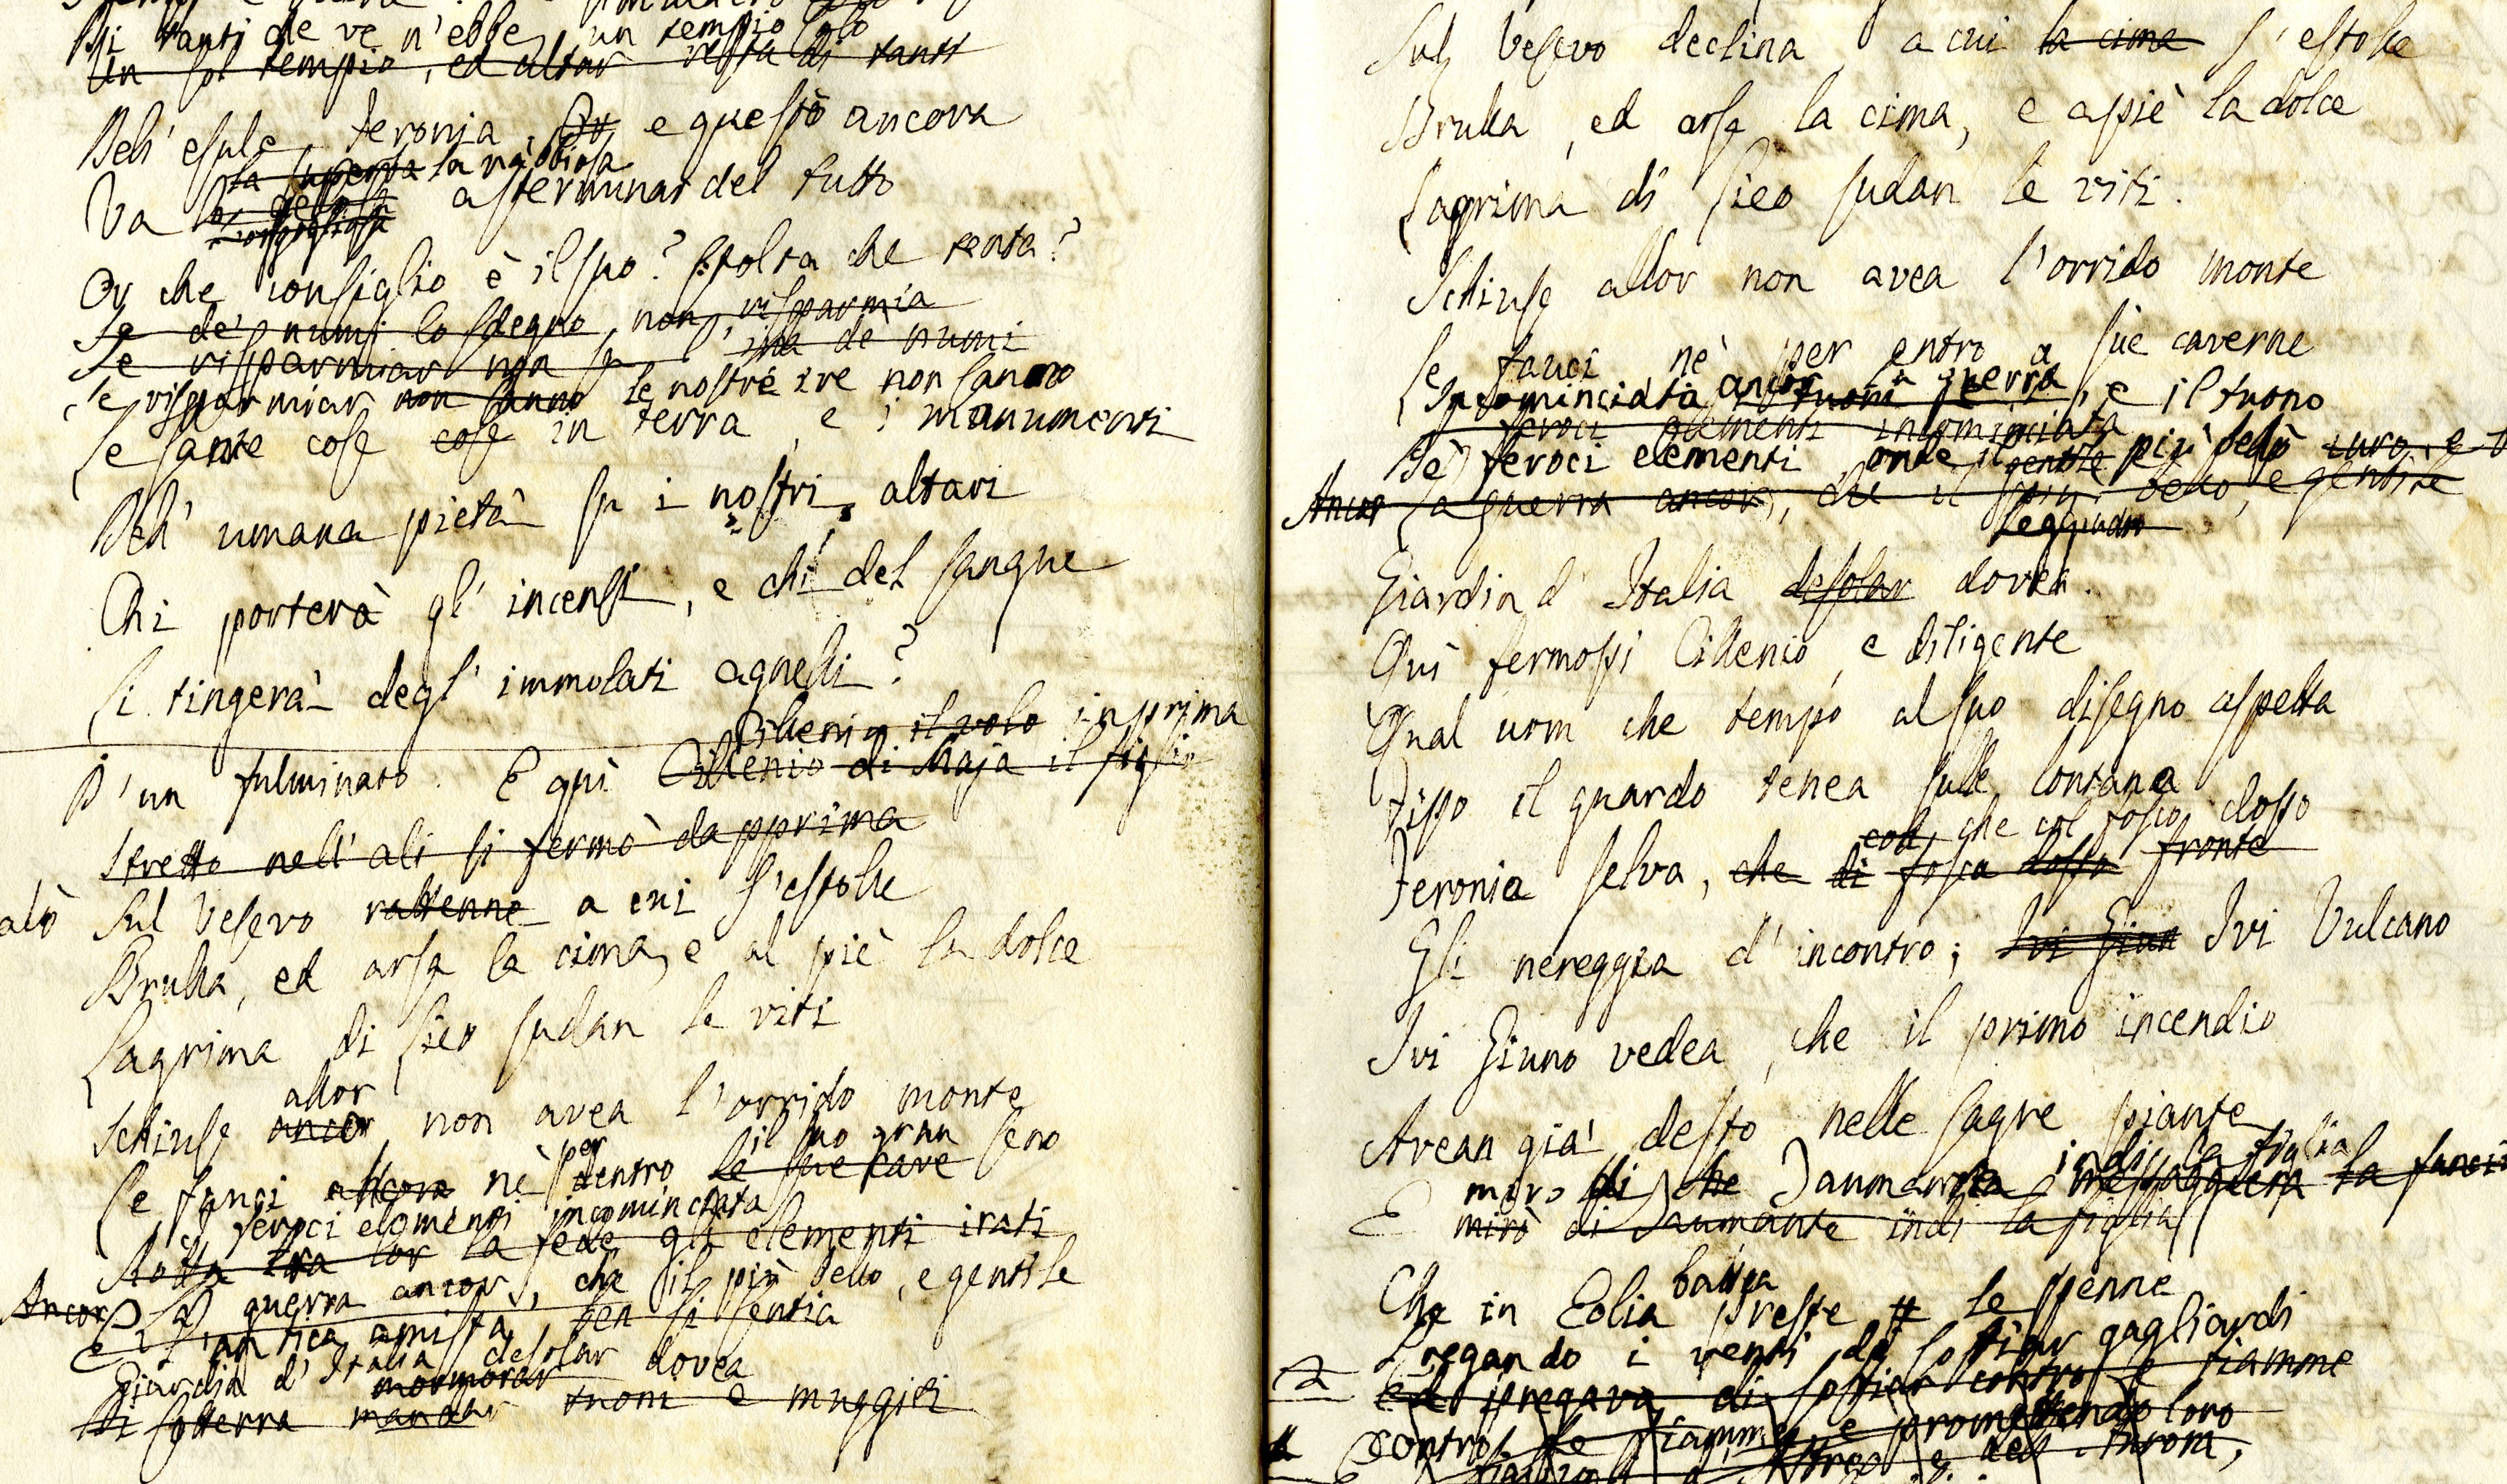 Di tanti che ve n'ebbe, un tempio solo
Un sol tempio, ed altar resta di tanti
Dell'esule Feronia, e questo ancora
la superba la rabbiosa
Va la gelosa a sterminar del tutto
orgogliosa
Or che consiglio è il suo? Stolta che tenta?
Se de' numi lo sdegno non risparmia
Se risparmiar non sa l'ira de' numi
Se risparmiar non sanno le nostre ire non sanno
Le sante cose cose in terra, e i monumenti
Dell'umana pietà su i nostri altari
Chi porterà gl'incensi, e chi del sangue
Si tingerà degl'immolati agnelli?
Cillenio il volo in prima
D'un fulminato. E quì Cillenio di Maja il figlio
Stretto nell'ali si fermò da pprima
calò Sul Vesevo rattenne a cui s'estolle
Brulla, ed arsa la cima, e al piè la dolce
Lagrima di Lieo sudan le viti
allor
Schiuse ancor non avea l'orrido monte
per il suo gran
Le fauci ancora nè dentro le sue cave seno
feroci elementi incominciata
Rotta tra lor la fede gli elementi irati
Ancor La guerra ancor, che il più bello, e gentile
e l'antica amistà, ben si sentia
Giardin d'Italia desolar dovea
mormorar
Di sotterra mandar tuoni e muggiti
Sul Vesevo declina a cui la cima s'estolle
Brulla, ed arsa la cima, e a piè la dolce
Lagrima di Lieo sudan le viti.
Schiuse allor non avea l'orrido monte
Le fauci nè per entro a sue caverne
Incominciata ancor tuoni guerra, e il tuono
feroci elementi incominciata
De' feroci elementi, onde il gentile più bello
Ancor La guerra ancor, che il più bello, e gentile
leggiadro
Giardin d'Italia desolar dovea.
Quì fermossi Cillenio, e diligente
Qual uom che tempo al suo disegno aspetta
Fisso il guardo tenea sulla lontana
col, che col fosco dosso
Feronia selva, che di fosca dosso fronte
Gli nereggia d'incontro; Ivi Giun Ivi Vulcano
Ivi Giuno vedea, che il primo incendio
Avean già desto nelle sagre piante
mirò di che Taumanzia indi la figlia messaggiera la
E mirò di Taumante indi la figlia
battea
Che in Eolia preste le penne
Pregando i venti di soffiar gagliardi
ed pregava di soffiar contro le fiamme
Contro le fiamme, e promettendo loro